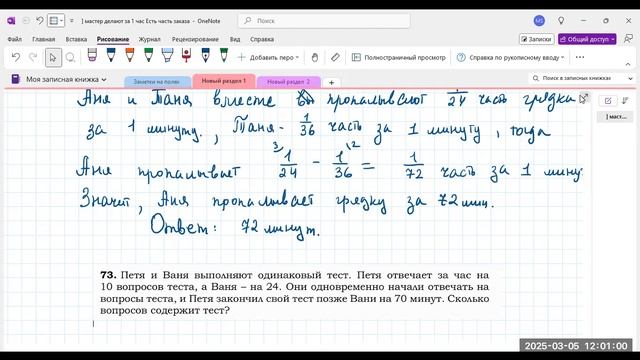 ] мастер делают за 1 час Есть часть заказа - OneNote
Поиск
MS
Файл Главная Вставка Рисование Журнал Рецензирование Вид Справка
Записки
Общий доступ
Добавить перо
Полноэкранный просмотр
Справка по рукописному вводу
Моя записная книжка
Заметки на полях
Новый раздел 1
Новый раздел 2
+
Поиск в записных книжках
] маст...
Аня и Таня вместе пропалывают 1/24 часть грядки
за 1 минуту., Таня - 1/36 часть за 1 минуту, тогда
Аня пропалывает 1/24 ³ - 1/36 ² = 1/72 часть за 1 мину
Значит, Аня пропалывает грядку за 72 мин.
Ответ: 72 минут.
73. Петя и Ваня выполняют одинаковый тест. Петя отвечает за час на
10 вопросов теста, а Ваня – на 24. Они одновременно начали отвечать на
вопросы теста, и Петя закончил свой тест позже Вани на 70 минут. Сколько
вопросов содержит тест?
2025-03-05 12:01:00